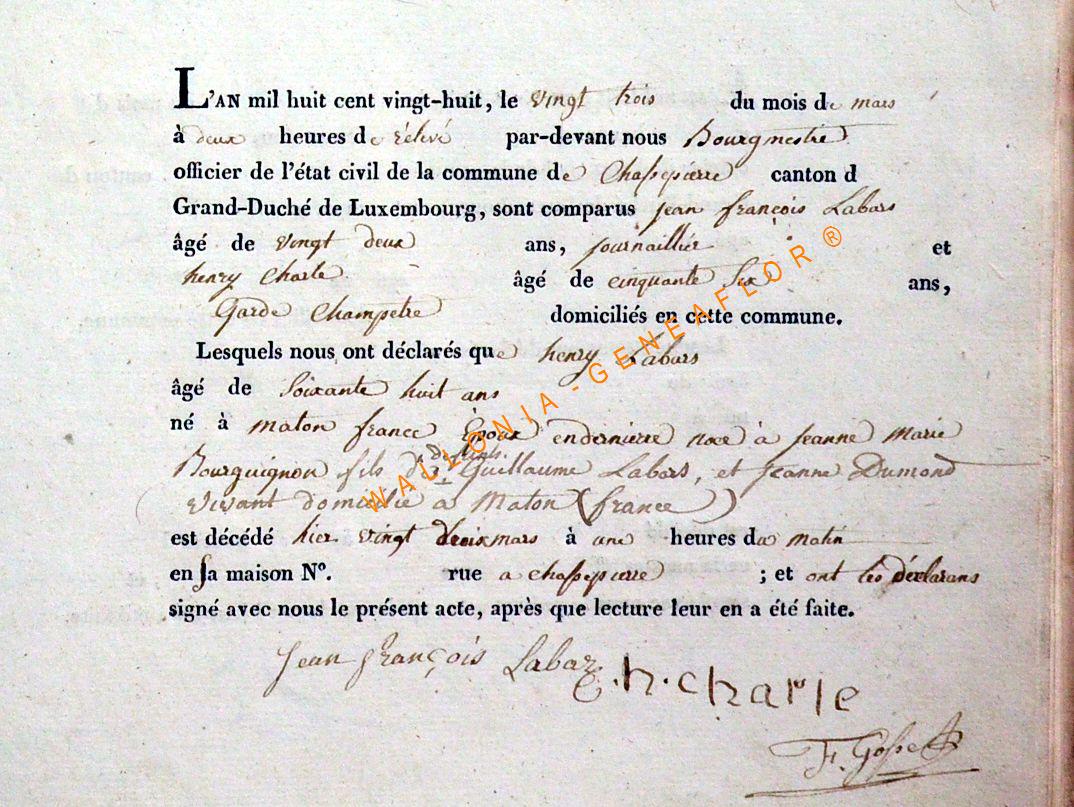 L'AN mil huit cent vingt-huit, le vingt trois du mois de mars
à deux heures de rélevé par-devant nous Bourgmestre
officier de l'état civil de la commune de Chassepierre canton d
Grand-Duché de Luxembourg, sont comparus jean françois Labars
âgé de vingt deux ans, journaillier et
henry Charle âgé de cinquante six ans,
Garde Champetre domiciliés en cette commune.
Lesquels nous ont déclarés que henry Labars
âgé de Soixante huit ans
né à maton france Epoux endernierre noce à jeanne marie
defunts
Bourguignon fils de Guillaume Labars, et jeanne Dumond
vivant domicilie a Maton (france)
est décédé hier vingt mars à une heures du matin
en sa maison N°. rue a chassepierre ; et ont les déclarans
signé avec nous le présent acte, après que lecture leur en a été faite.
Jean françois Labar
h. charle
F. Gosse
WALLONIA - GENEAFLOR ®